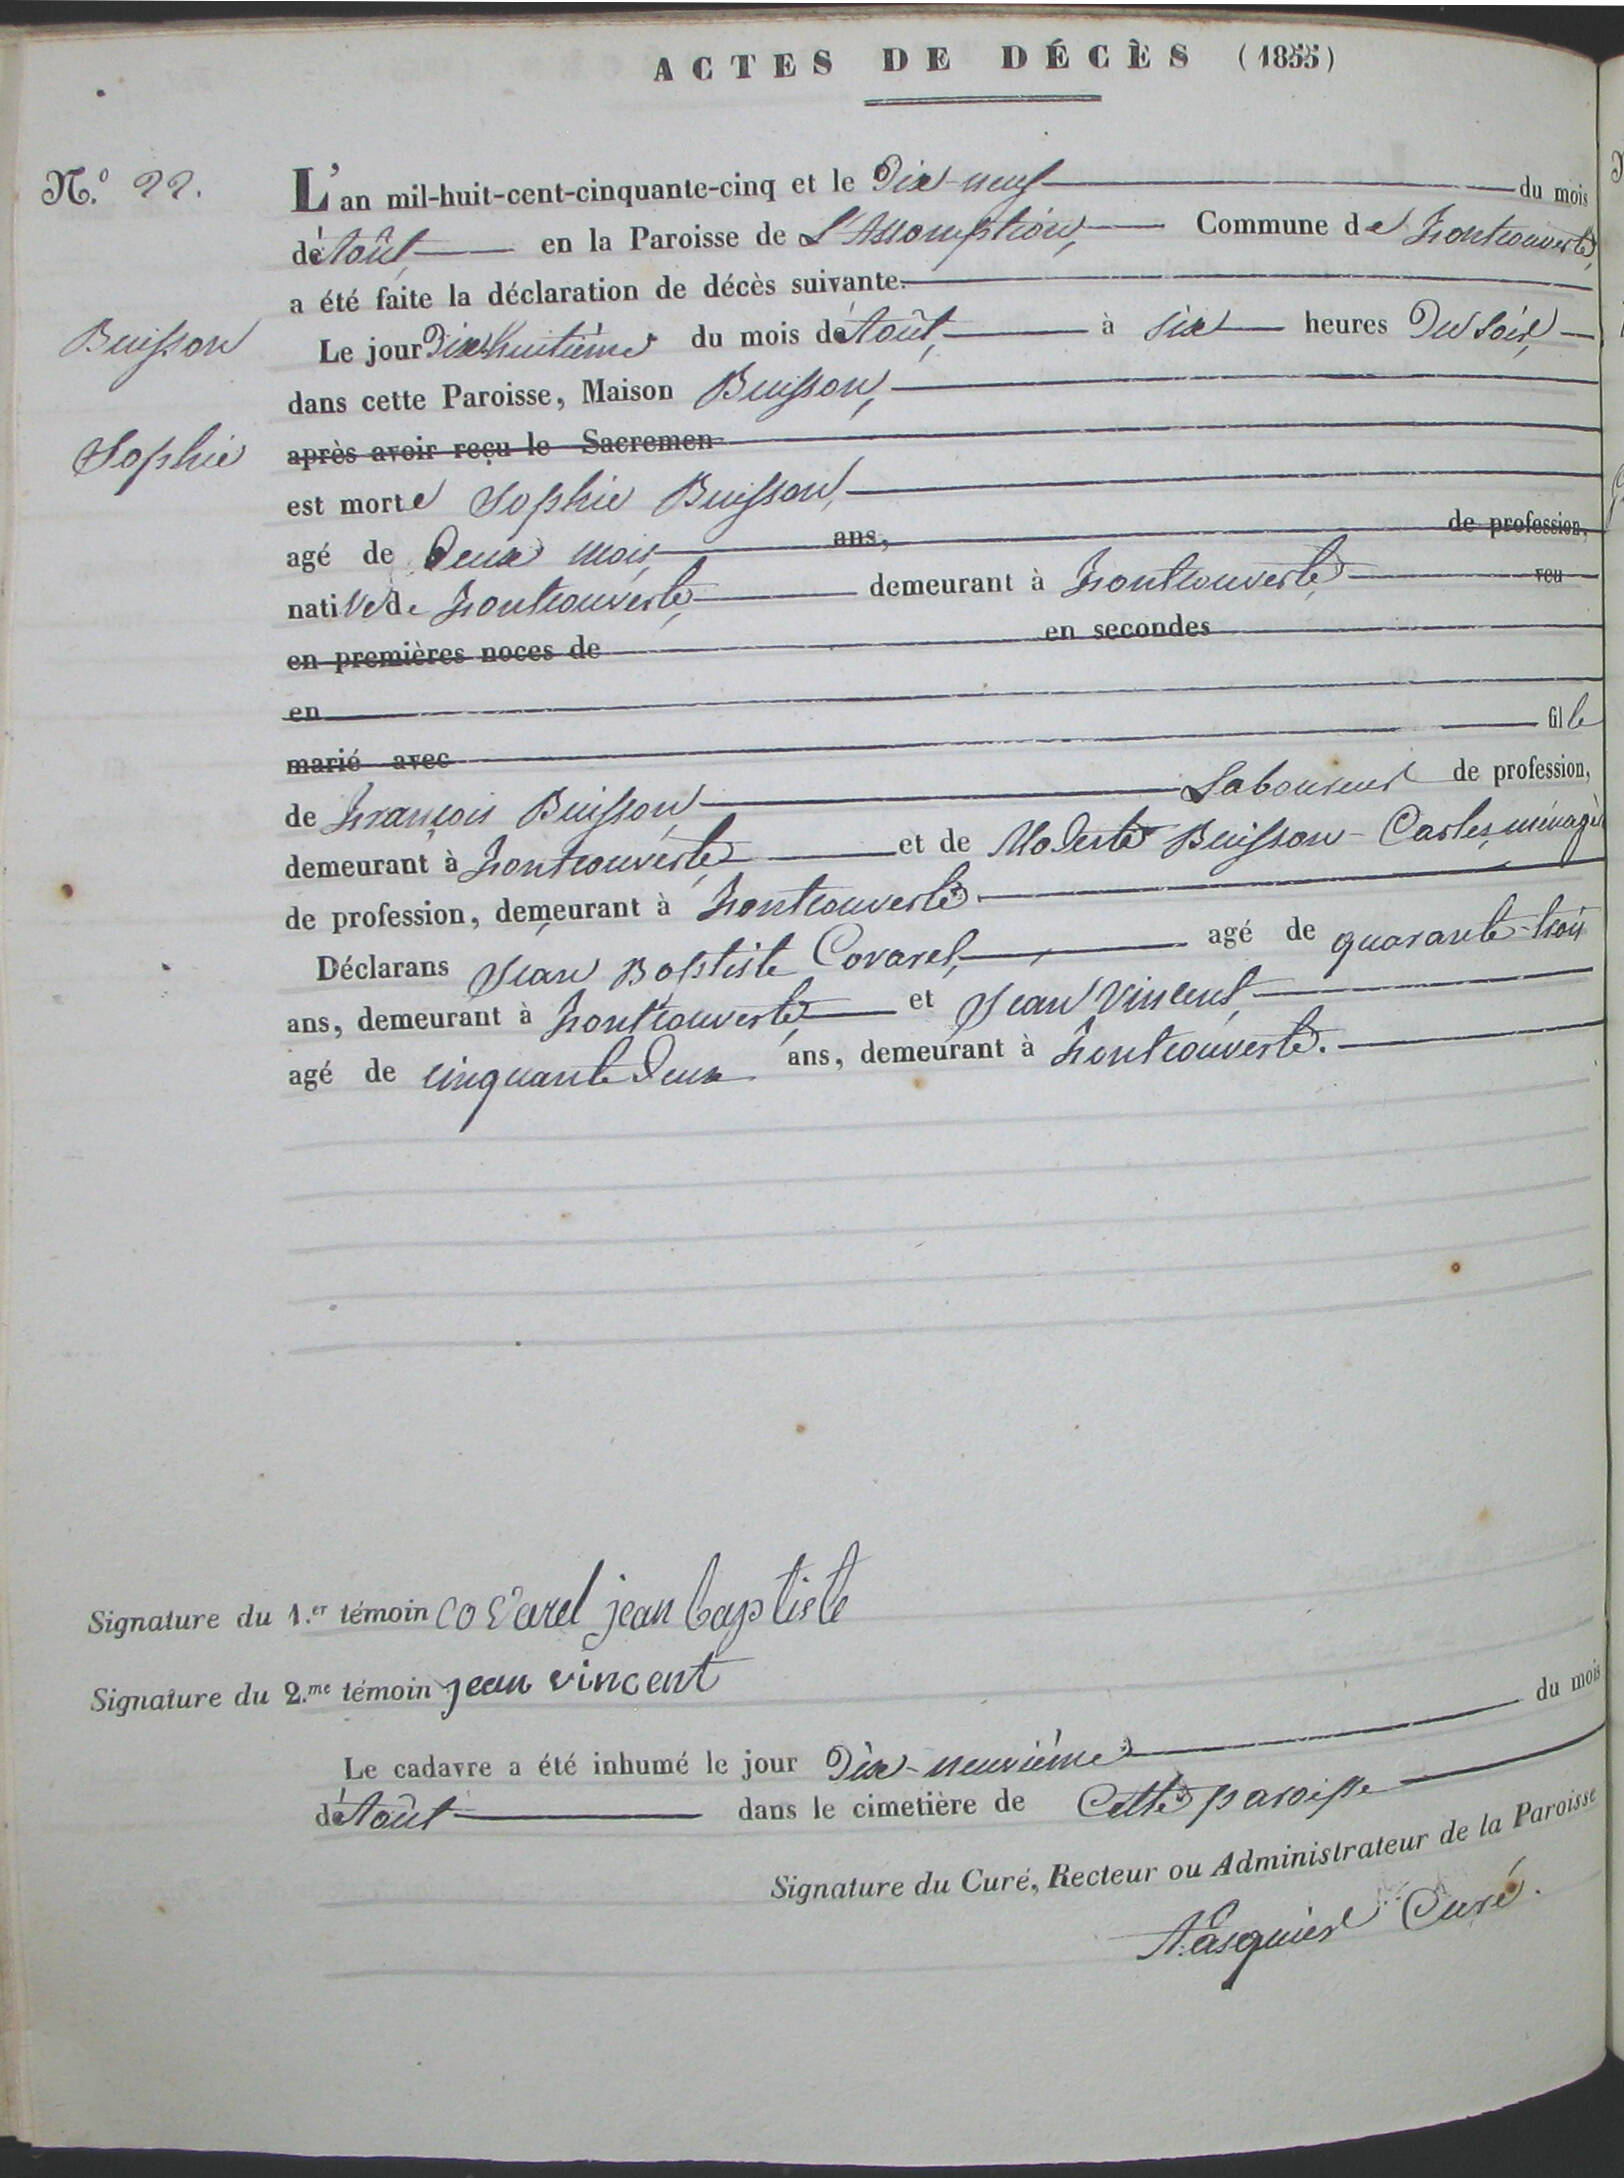 ACTES DE DÉCÈS (1855)
N.º 22.
L'an mil-huit-cent-cinquante-cinq et le Dix-neuf du mois
d'Août en la Paroisse de L'Assomption, Commune de Fontcouverte,
a été faite la déclaration de décès suivante.
Buisson
Le jour Dixhuitième du mois d'Août, à six heures Du soir,
dans cette Paroisse, Maison Buisson,
Sophie
après avoir reçu le Sacremen
est morte Sophie Buisson,
agé de Deux mois, ans, de profession,
native de Fontcouverte, demeurant à Fontcouverte, veu
en premières noces de en secondes
en
marié avec fille
de François Buisson, Laboureur de profession,
demeurant à Fontcouverte, et de Modeste Buisson-Carles, ménagèr
de profession, demeurant à Fontcouverte
Déclarans Jean Baptiste Covarel, agé de quarante-trois
ans, demeurant à Fontcouverte, et Jean Vincent,
agé de cinquante Deux ans, demeurant à Fontcouverte.
Signature du 1.er témoin covarel jean baptiste
Signature du 2.me témoin jean vincent
Le cadavre a été inhumé le jour Dix-neuvième du mois
d'Août dans le cimetière de Cette paroisse
Signature du Curé, Recteur ou Administrateur de la Paroisse
Curé.